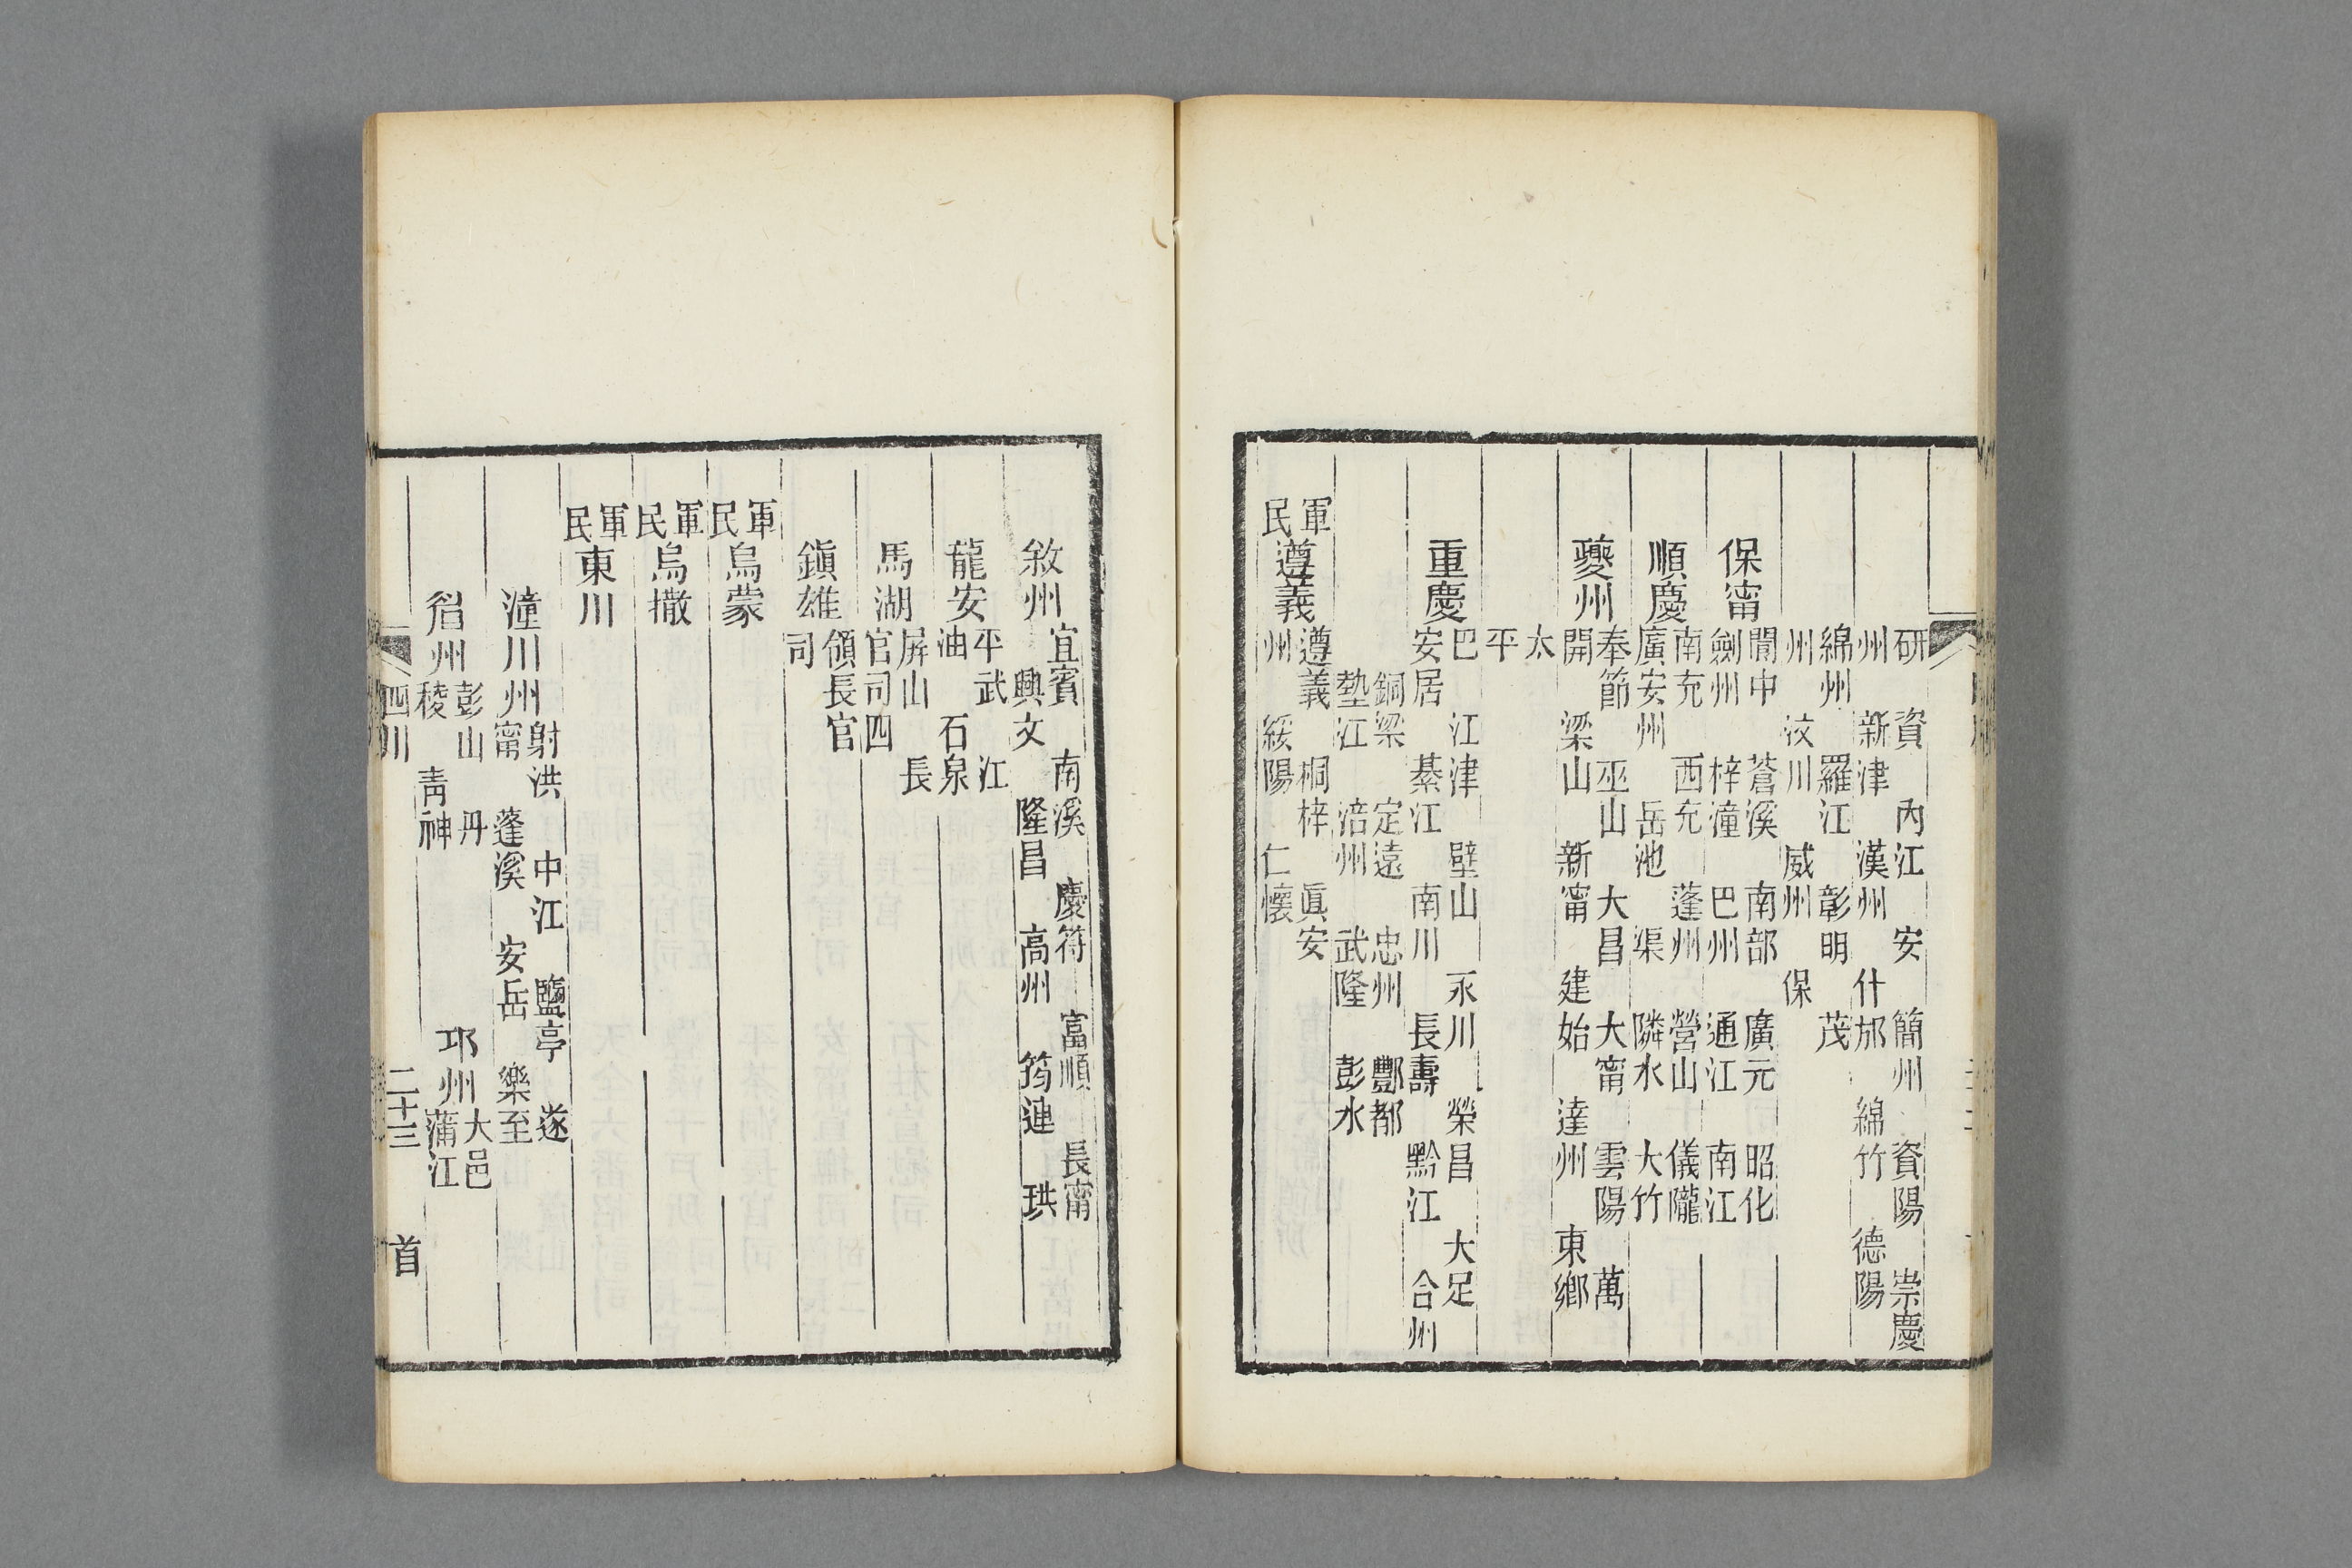 研 資 內江 安 簡州 資陽 崇慶
州 新津 漢州 什邡 綿竹 德陽
綿州 羅江 彰明 茂
州 汶川 威州 保
保甯 閬中 蒼溪 南部 廣元 昭化
劍州 梓潼 巴州 通江 南江
順慶 南充 西充 蓬州 營山 儀隴
廣安州 岳池 渠 隣水 大竹
夔州 奉節 巫山 大昌 大甯 雲陽 萬
開 梁山 新甯 建始 達州 東鄉
太
平
重慶 巴 江津 壁山 永川 榮昌 大足
安居 綦江 南川 長壽 黔江 合州
銅梁 定遠 忠州 酆都
墊江 涪州 武隆 彭水
軍民 遵義 遵義 桐梓 眞安
州 綏陽 仁懷
敘州 宜賓 南溪 慶符 富順 長甯
興文 隆昌 高州 筠連 珙
龍安 平武 江
油 石泉
馬湖 屛山 長
官司四
鎭雄 領長官
司
軍民 烏蒙
軍民 烏撒
軍民 東川
潼川州 射洪 中江 鹽亭 遂
甯 蓬溪 安岳 樂至
眉州 彭山 丹
稜 靑神
邛州 大邑
蒲江
四川 二十三 首